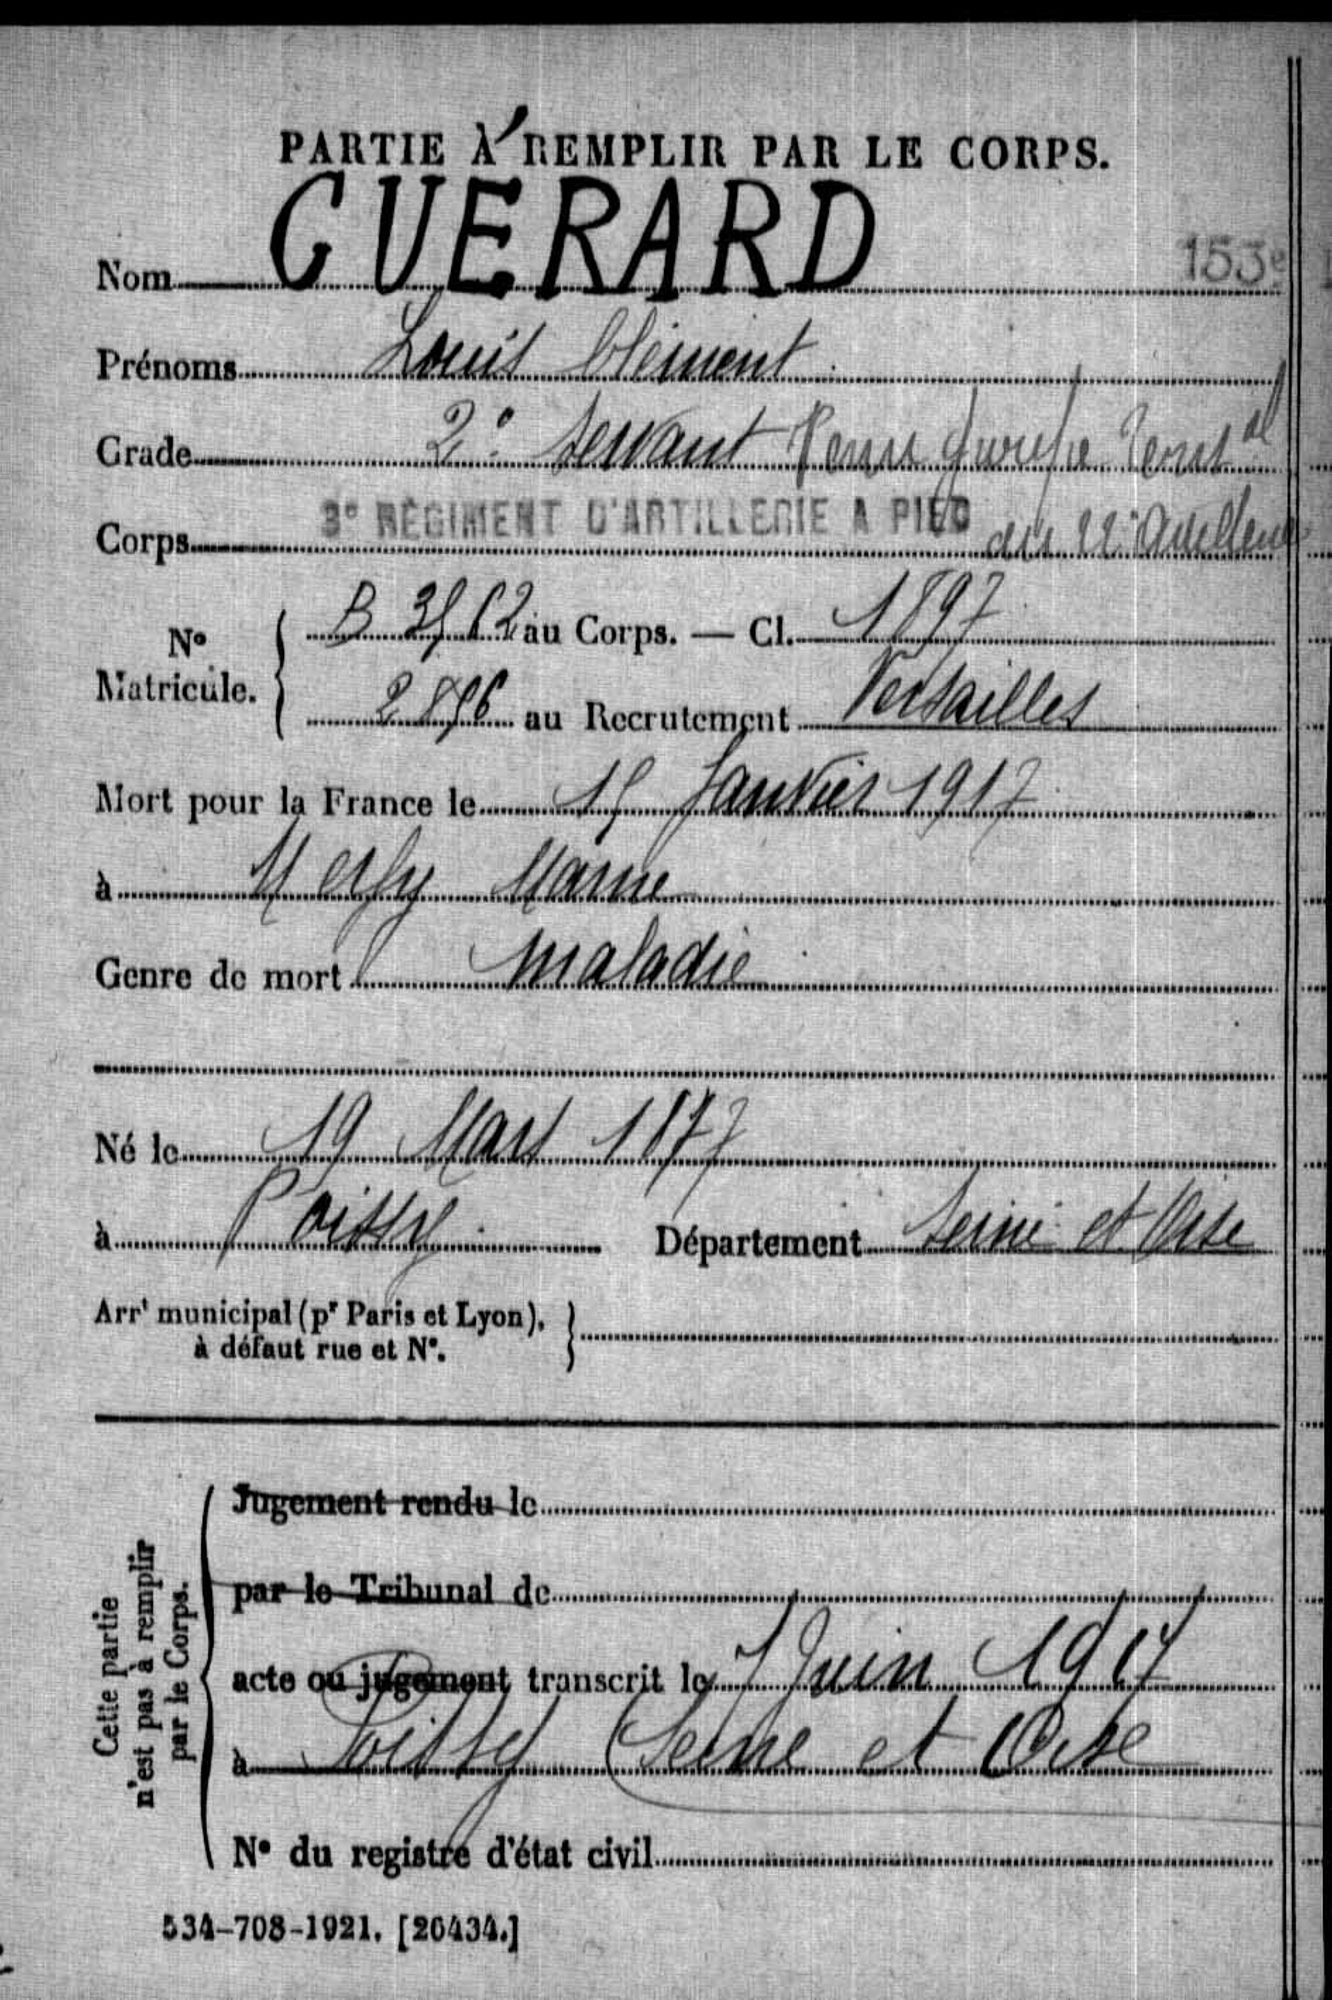 PARTIE À REMPLIR PAR LE CORPS.
Nom GUÉRARD
153e
Prénoms Louis Clément
Grade 2e servant
Corps 3e RÉGIMENT D'ARTILLERIE A PIED
No Matricule. B au Corps. — Cl. 1897
au Recrutement Versailles
Mort pour la France le 15 Janvier 1917
à Merfy Marne
Genre de mort maladie
Né le 19 Mars 1877
à Poissy Département Seine et Oise
Arrt municipal (pr Paris et Lyon),
à défaut rue et No.
Cette partie
n'est pas à remplir
par le Corps.
Jugement rendu le
par le Tribunal de
acte ou jugement transcrit le 7 Juin 1917
à Poissy (Seine et Oise
No du registre d'état civil
534-708-1921. [26434.]